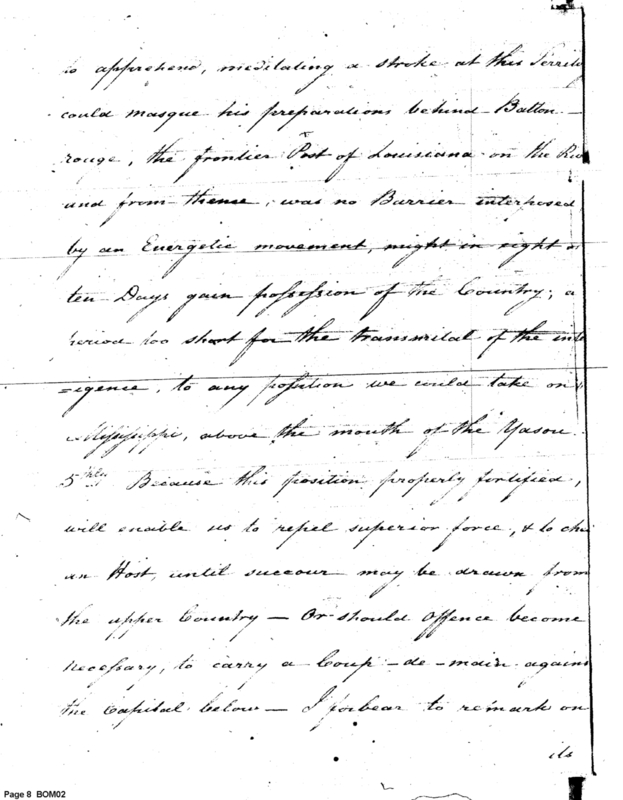 to apprehend, meditating a stroke at this Territ
could masque his preparations behind Batton-
rouge, the frontier Post of Louisiana on the Riv
and from thence, was no Barrier interposed,
by an Energetic movement, might in eight or
ten Days gain possession of the Country; a
period too short for the transmital of the inte
=igence, to any position we could take on
Mississippi, above the mouth of the Yasou.
5thly Because this position properly fortified,
will enable us to repel superior force, & to che
an Host, until succour may be drawn from
the upper Country — Or should Offence become
necessary, to carry a Coup-de-main agains
the Capital below — I forbear to remark on
its
Page 8 BOM02